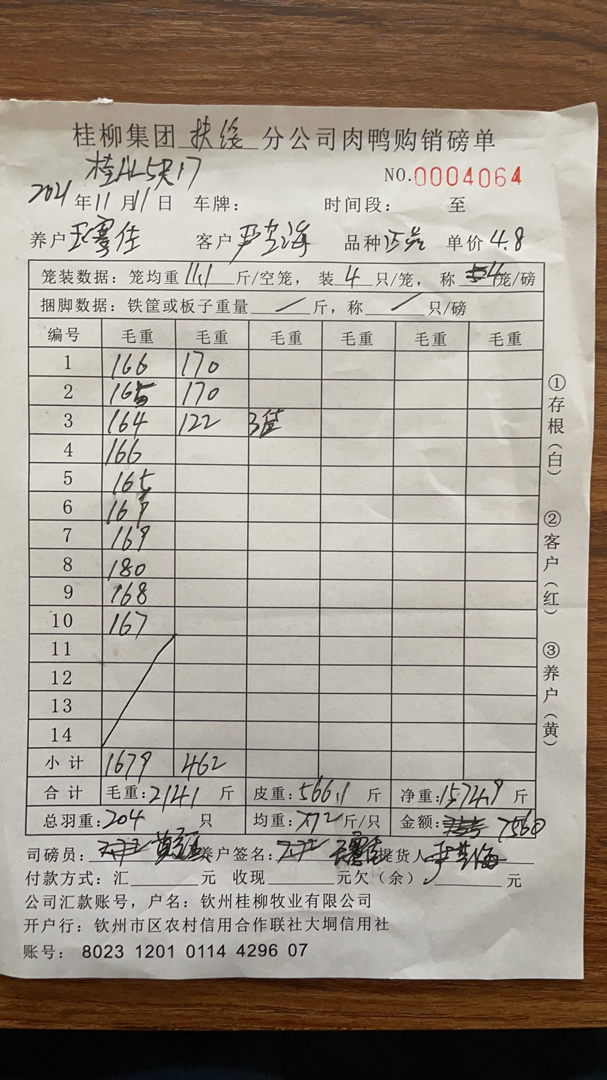 桂柳集团 扶绥 分公司肉鸭购销磅单
NO.0004064
2021年11月11日 车牌: 时间段: 至
养户 客户 品种 单价 4.8
笼装数据: 笼均重 11.1 斤/空笼, 装 4 只/笼, 称 4 笼/磅
捆脚数据: 铁筐或板子重量 / 斤, 称 / 只/磅
编号 毛重 毛重 毛重 毛重 毛重 毛重
1 166 170
2 165 170
3 164 122 3笼
4 166
5 165
6 169
7 169
8 180
9 168
10 167
11
12
13
14
小计 1679 462
合计 毛重:2141 斤 皮重:566.1 斤 净重:1574.9 斤
总羽重:204 只 均重:7.72 斤/只 金额: 7560
司磅员: 养户签名: 提货人
付款方式: 汇 元 收现 元欠(余) 元
公司汇款账号, 户名: 钦州桂柳牧业有限公司
开户行: 钦州市区农村信用合作联社大垌信用社
账号: 8023 1201 0114 4296 07
①存根(白) ②客户(红) ③养户(黄)